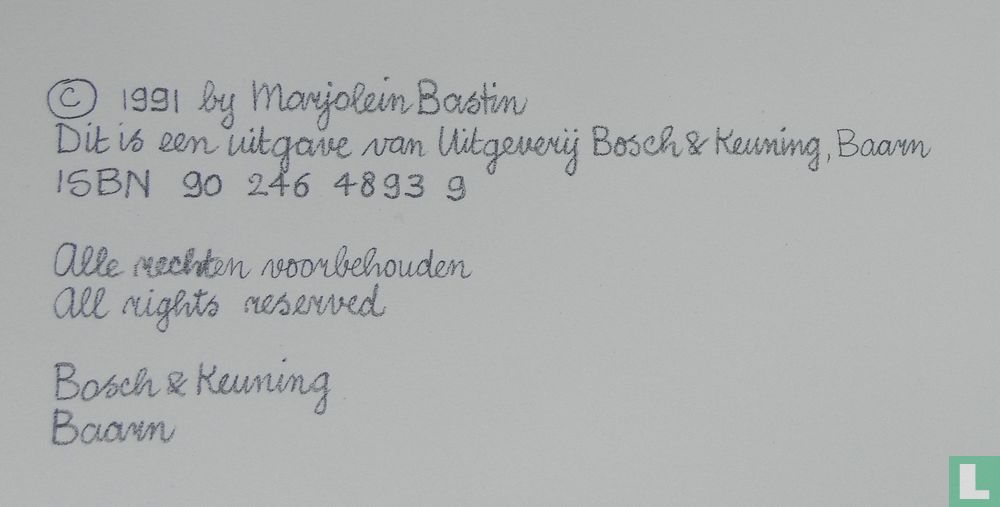 © 1991 by Marjolein Bastin
Dit is een uitgave van Uitgeverij Bosch & Keuning, Baarn
ISBN 90 246 4893 9
Alle rechten voorbehouden
All rights reserved
Bosch & Keuning
Baarn
L